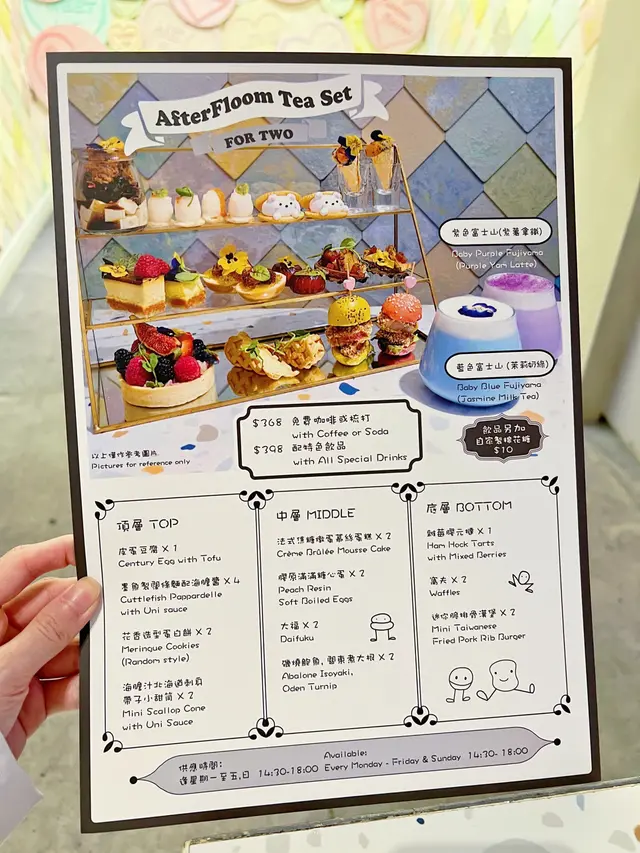 AfterFloom Tea Set
FOR TWO
紫色富士山(紫薯拿鐵)
Baby Purple Fujiyama
(Purple Yam Latte)
藍色富士山 (茉莉奶綠)
Baby Blue Fujiyama
(Jasmine Milk Tea)
飲品另加
自家製棉花糖
$10
$368 免費咖啡或梳打
with Coffee or Soda
$398 配特色飲品
with All Special Drinks
以上僅作參考圖片
Pictures for reference only
頂層 TOP
皮蛋豆腐 X 1
Century Egg with Tofu
墨魚製闊條麵配海膽醬 X 4
Cuttlefish Pappardelle
with Uni sauce
花香造型蛋白餅 X 2
Meringue Cookies
(Random style)
海膽汁北海道刺身
帶子小甜筒 X 2
Mini Scallop Cone
with Uni Sauce
中層 MIDDLE
法式焦糖燉蛋慕絲蛋糕 X 2
Crème Brûlée Mousse Cake
膠原滿滿糖心蛋 X 2
Peach Resin
Soft Boiled Eggs
大福 X 2
Daifuku
磯燒鮑魚, 關東煮大根 X 2
Abalone Isoyaki,
Oden Turnip
底層 BOTTOM
X 1
Ham Hock Tarts
with Mixed Berries
窩夫 X 2
Waffles
迷你脆排骨漢堡 X 2
Mini Taiwanese
Fried Pork Rib Burger
供應時間:
逢星期一至五,日 14:30-18:00
Available:
Every Monday - Friday & Sunday 14:30- 18:00